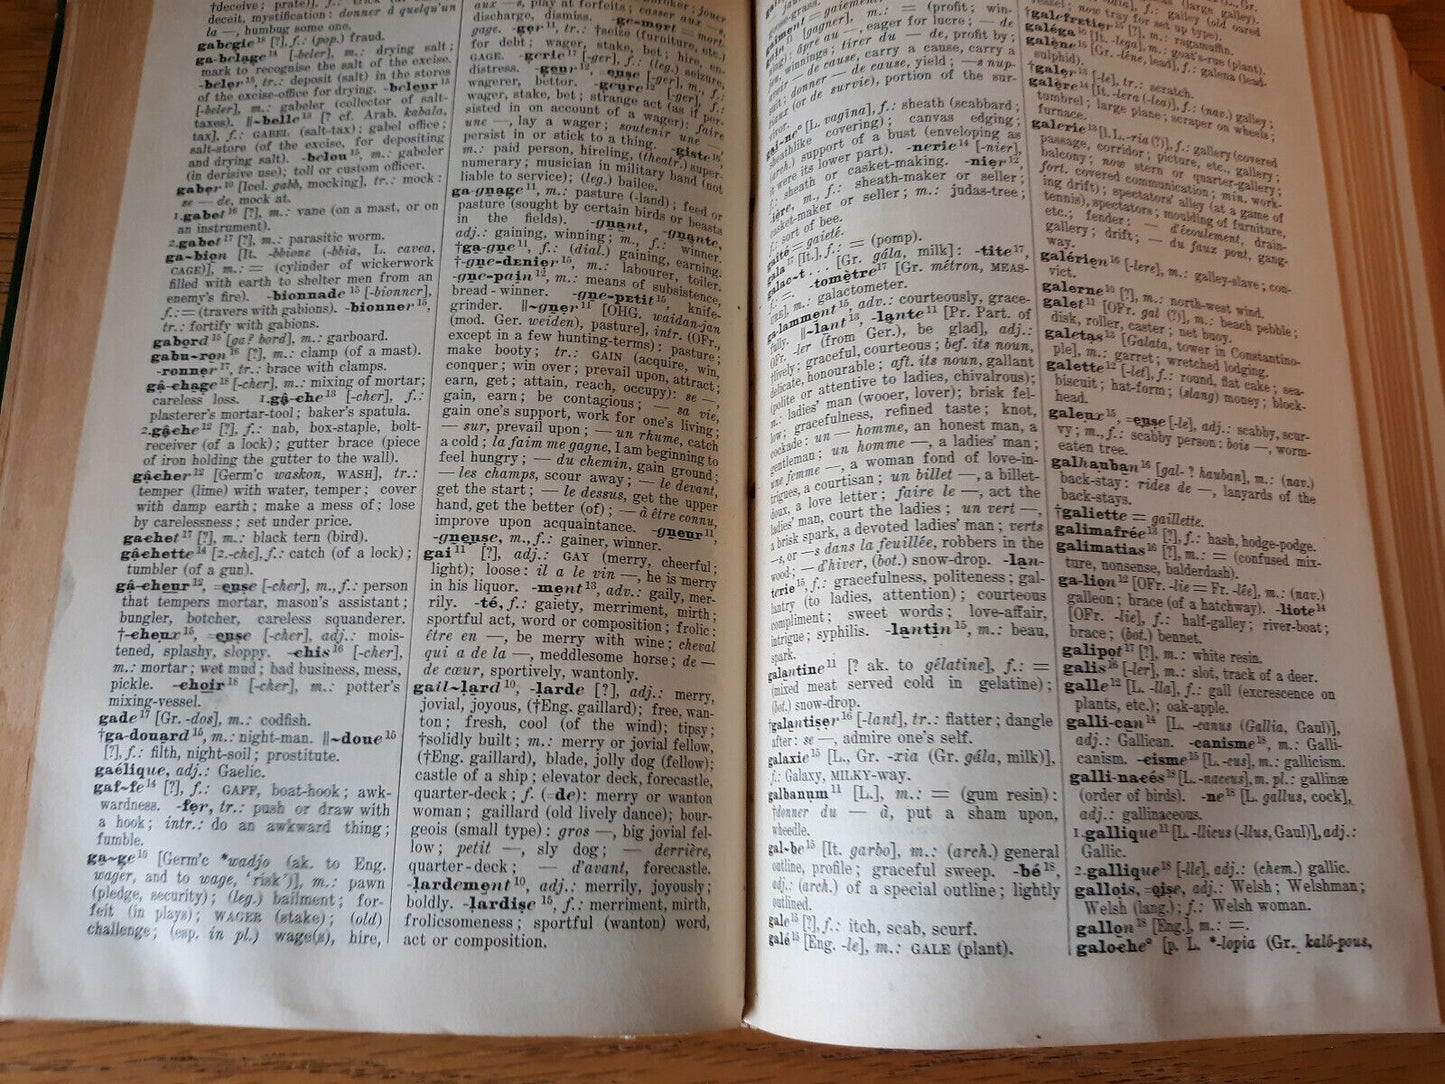 †deceive ; prate],
deceit, mystification : donner d quelqu'un
la —, humbug some one.
gabegie¹⁶ [?], f.: (pop.) fraud.
ga-belage¹⁴ [-beler], m.: drying salt ;
mark to recognise the salt of the excise.
-beler¹³, tr.: deposit (salt) in the stores
of the excise-office for drying. -beleur¹⁵
[-beler], m.: gabeler (collector of salt-
taxes). ‖~belle¹³ [? cf. Arab. kabala,
tax], f.: GABEL (salt-tax) ; gabel office ;
salt-store (of the excise, for depositing
and drying salt). -belou¹⁵, m.: gabeler
(in derisive use); toll or custom officer.
gaber¹⁰ [Icel. gabb, mocking], tr.: mock :
se — de, mock at.
1.gabet¹⁶ [?], m.: vane (on a mast, or on
an instrument).
2.gabet¹⁷ [?], m.: parasitic worm.
ga~bion [It. -bbione (-bbia, L. cavea,
CAGE)], m.: = (cylinder of wickerwork
filled with earth to shelter men from an
enemy's fire). -bionnade¹⁵ [-bionner],
f.: = (travers with gabions). -bionner¹⁵,
tr.: fortify with gabions.
gabord¹⁵ [ga? bord], m.: garboard.
gabu-ron¹⁶ [?], m.: clamp (of a mast).
-ronner¹⁷, tr.: brace with clamps.
gâ-chage¹⁸ [-cher], m.: mixing of mortar;
careless loss. 1.gâ-che¹³ [-cher], f.:
plasterer's mortar-tool ; baker's spatula.
2.gâche¹² [?], f.: nab, box-staple, bolt-
receiver (of a lock) ; gutter brace (piece
of iron holding the gutter to the wall).
gâcher¹² [Germ'c waskon, WASH], tr.:
temper (lime) with water, temper ; cover
with damp earth ; make a mess of ; lose
by carelessness ; set under price.
gachet¹⁷ [?], m.: black tern (bird).
gâchette¹⁴ [2.-che], f.: catch (of a lock) ;
tumbler (of a gun).
gâ-cheur¹², =euse [-cher], m., f.: person
that tempers mortar, mason's assistant ;
bungler, botcher, careless squanderer.
†-cheux¹⁵, =euse [-cher], adj.: mois-
tened, splashy, sloppy. -chis¹⁶ [-cher],
m.: mortar ; wet mud ; bad business, mess,
pickle. -choir¹⁸ [-cher], m.: potter's
mixing-vessel.
gade¹⁷ [Gr. -dos], m.: codfish.
†ga-douard¹⁵, m.: night-man. ‖~doue¹⁵
[?], f.: filth, night-soil ; prostitute.
gaélique, adj.: Gaelic.
gaf-fe¹⁴ [?], f.: GAFF, boat-hook ; awk-
wardness. -fer, tr.: push or draw with
a hook ; intr.: do an awkward thing ;
fumble.
ga~ge¹⁰ [Germ'c *wadjo (ak. to Eng.
wager, and to wage, 'risk')], m.: pawn
(pledge, security) ; (leg.) bailment ; for-
feit (in plays) ; WAGER (stake) ; (old)
challenge ; (esp. in pl.) wage(s), hire,
aux —s, play at forfeits ; casser aux —s,
discharge, dismiss. -ge-mort = mort-
gage. -ger, tr.: †seize (furniture, etc.)
for debt ; wager, stake, bet ; hire, en-
GAGE. -gerie¹⁷ [-ger], f.: (leg.) seizure,
distress. -geur¹², =euse [-ger], m., f.:
wagerer, bettor. -geure¹² [-ger], f.:
wager, stake, bet ; strange act (as if per-
sisted in on account of a wager) : faire
une —, lay a wager ; soutenir une —,
persist in or stick to a thing. -giste¹⁵
m.: paid person, hireling, (theatr.) super-
numerary ; musician in military band (not
liable to service) ; (leg.) bailee.
ga-gnage¹¹, m.: pasture (-land) ; feed or
pasture (sought by certain birds or beasts
in the fields). -gnant, -gnante,
adj.: gaining, winning ; m., f.: winner.
†ga-gne¹¹, f.: (dial.) gaining, earning.
†-gne-denier¹⁵, m.: labourer, toiler.
-gne-pain¹², m.: means of subsistence,
bread - winner. -gne-petit¹⁵, knife-
grinder. ‖~gner¹¹ [OHG. waidan-jan
(mod. Ger. weiden), pasture], intr. (OFr.,
except in a few hunting-terms) : pasture ;
make booty ; tr.: GAIN (acquire, win,
conquer ; win over ; prevail upon, attract ;
earn, get ; attain, reach, occupy) : se —,
gain, earn ; be contagious ; — sa vie,
gain one's support, work for one's living ;
— sur, prevail upon ; — un rhume, catch
a cold ; la faim me gagne, I am beginning to
feel hungry ; — du chemin, gain ground ;
— les champs, scour away ; — le devant,
get the start ; — le dessus, get the upper
hand, get the better (of) ; — à être connu,
improve upon acquaintance. -gneur¹¹,
-gneuse, m., f.: gainer, winner.
gai¹¹ [?], adj.: GAY (merry, cheerful ;
light) ; loose : il a le vin —, he is merry
in his liquor. -ment¹³, adv.: gaily, mer-
rily. -té, f.: gaiety, merriment, mirth ;
sportful act, word or composition ; frolic :
être en —, be merry with wine ; cheval
qui a de la —, meddlesome horse ; de —
de cœur, sportively, wantonly.
gail~lard¹⁰, -larde [?], adj.: merry,
jovial, joyous, (†Eng. gaillard) ; free, wan-
ton ; fresh, cool (of the wind) ; tipsy ;
†solidly built ; m.: merry or jovial fellow,
(†Eng. gaillard), blade, jolly dog (fellow) ;
castle of a ship ; elevator deck, forecastle,
quarter-deck ; f. (=de): merry or wanton
woman ; gaillard (old lively dance) ; bour-
geois (small type) : gros —, big jovial fel-
low ; petit —, sly dog ; — derrière,
quarter-deck ; — d'avant, forecastle.
-lardement¹⁰, adj.: merrily, joyously ;
boldly. -lardise¹⁵, f.: merriment, mirth,
frolicsomeness ; sportful (wanton) word,
act or composition.
gaiement,
[gagner], m.: = (profit ; win-
âpre au —, eager for lucre ; — de
winnings ; tirer du — de, profit by ;
— de cause, carry a cause, carry a
suit ; donner — de cause, yield ; —s nup-
tiaux (or de survie), portion of the sur-
vivor.
gai-ne⁰ [L. vagina], f.: sheath (scabbard ;
sheathlike covering) ; canvas edging ;
(arch.) support of a bust (enveloping as
it were its lower part). -nerie¹⁴ [-nier],
f.: sheath or casket-making. -nier¹²
-ière, m., f.: sheath-maker or seller ;
casket-maker or seller ; m.: judas-tree ;
f.: sort of bee.
gaîté = gaieté.
gala¹⁷ [It.], f.: = (pomp).
galac-t . . . [Gr. gála, milk] : -tite¹⁷,
f.: =. -tomètre¹⁷ [Gr. métron, MEAS-
URE], m.: galactometer.
ga-lamment¹⁵, adv.: courteously, grace-
fully. ‖~lant¹³, -lante¹¹ [Pr. Part. of
OFr. -ler (from Ger.), be glad], adj.:
lively ; graceful, courteous ; bef. its noun,
delicate, honourable ; aft. its noun, gallant
(polite or attentive to ladies, chivalrous) ;
m.: ladies' man (wooer, lover) ; brisk fel-
low ; gracefulness, refined taste ; knot,
cockade : un — homme, an honest man, a
gentleman ; un homme —, a ladies' man ;
une femme —, a woman fond of love-in-
trigues, a courtisan ; un billet —, a billet-
doux, a love letter ; faire le —, act the
ladies' man, court the ladies ; un vert —,
a brisk spark, a devoted ladies' man ; verts
—s, or —s dans la feuillée, robbers in the
wood ; — d'hiver, (bot.) snow-drop. -lan-
terie¹⁵, f.: gracefulness, politeness ; gal-
lantry (to ladies, attention) ; courteous
compliment ; sweet words ; love-affair,
intrigue ; syphilis. -lantin¹⁵, m.: beau,
spark.
galantine¹¹ [? ak. to gélatine], f.: =
(mixed meat served cold in gelatine) ;
(bot.) snow-drop.
†galantiser¹⁶ [-lant], tr.: flatter ; dangle
after : se —, admire one's self.
galaxie¹⁵ [L., Gr. -xia (Gr. gála, milk)],
f.: Galaxy, MILKY-way.
galbanum¹¹ [L.], m.: = (gum resin) :
†donner du — à, put a sham upon,
wheedle.
gal-be¹⁵ [It. garbo], m.: (arch.) general
outline, profile ; graceful sweep. -bé¹⁸,
adj.: (arch.) of a special outline ; lightly
outlined.
gale¹⁵ [?], f.: itch, scab, scurf.
galé¹⁵ [Eng. -le], m.: GALE (plant).
(large galley).
galley (old oared
vessel ; now tray for set up type).
†galefretier¹⁵ [?], m.: ragamuffin.
galéga¹⁶ [It. -lega], m.: goat's-rue (plant).
galène¹⁶ [Gr. -léne, lead], f.: galena (lead-
sulphid).
†galer¹³ [-le], tr.: scratch.
galère¹⁴ [It. -lera (-lea)], f.: (nav.) galley ;
tumbrel ; large plane ; scraper on wheels ;
furnace.
galerie¹³ [l. L. -ria (?)], f.: gallery (covered
passage, corridor ; picture, etc., gallery ;
balcony ; now stern or quarter-gallery ;
fort. covered communication ; min. work-
ing drift) ; spectators' alley (at a game of
tennis), spectators ; moulding of furniture,
etc. ; fender : — d'écoulement, drain-
gallery ; drift ; — du faux pont, gang-
way.
galérien¹⁶ [-lere], m.: galley-slave ; con-
vict.
galerne¹⁰ [?], m.: north-west wind.
galet¹¹ [OFr. gal (?)], m.: beach pebble ;
disk, roller, caster ; net buoy.
galetas¹³ [Galata, tower in Constantino-
ple], m.: garret ; wretched lodging.
galette¹² [-let], f.: round, flat cake ; sea-
biscuit ; hat-form ; (slang) money ; block-
head.
galeux¹⁵, =euse [-le], adj.: scabby, scur-
vy ; m., f.: scabby person : bois —, worm-
eaten tree.
galhauban¹⁶ [gal- ? hauban], m.: (nav.)
back-stay : rides de —, lanyards of the
back-stays.
†galiette = gaillette.
galimafrée¹³ [?], f.: hash, hodge-podge.
galimatias¹⁶ [?], m.: = (confused mix-
ture, nonsense, balderdash).
ga-lion¹² [OFr. -lie = Fr. -lée], m.: (nav.)
galleon ; brace (of a hatchway). -liote¹⁴
[OFr. -lie], f.: half-galley ; river-boat ;
brace ; (bot.) bennet.
galipot¹⁷ [?], m.: white resin.
galis¹⁶ [-ler], m.: slot, track of a deer.
galle¹² [L. -lla], f.: gall (excrescence on
plants, etc.) ; oak-apple.
galli-can¹⁴ [L. -canus (Gallia, Gaul)],
adj.: Gallican. -canisme¹⁸, m.: Galli-
canism. -cisme¹⁵ [L. -cus], m.: gallicism.
galli-nacés¹⁸ [L. -naceus], m. pl.: gallinæ
(order of birds). -ne¹⁶ [L. gallus, cock],
adj.: gallinaceous.
1.gallique¹¹ [L. -llicus (-llus, Gaul)], adj.:
Gallic.
2.gallique¹⁸ [-lle], adj.: (chem.) gallic.
gallois, =oise, adj.: Welsh ; Welshman ;
Welsh (lang.) ; f.: Welsh woman.
gallon¹⁸ [Eng.], m.: =.
galoche⁰ [p. L. *-lopia (Gr. kaló-pous,